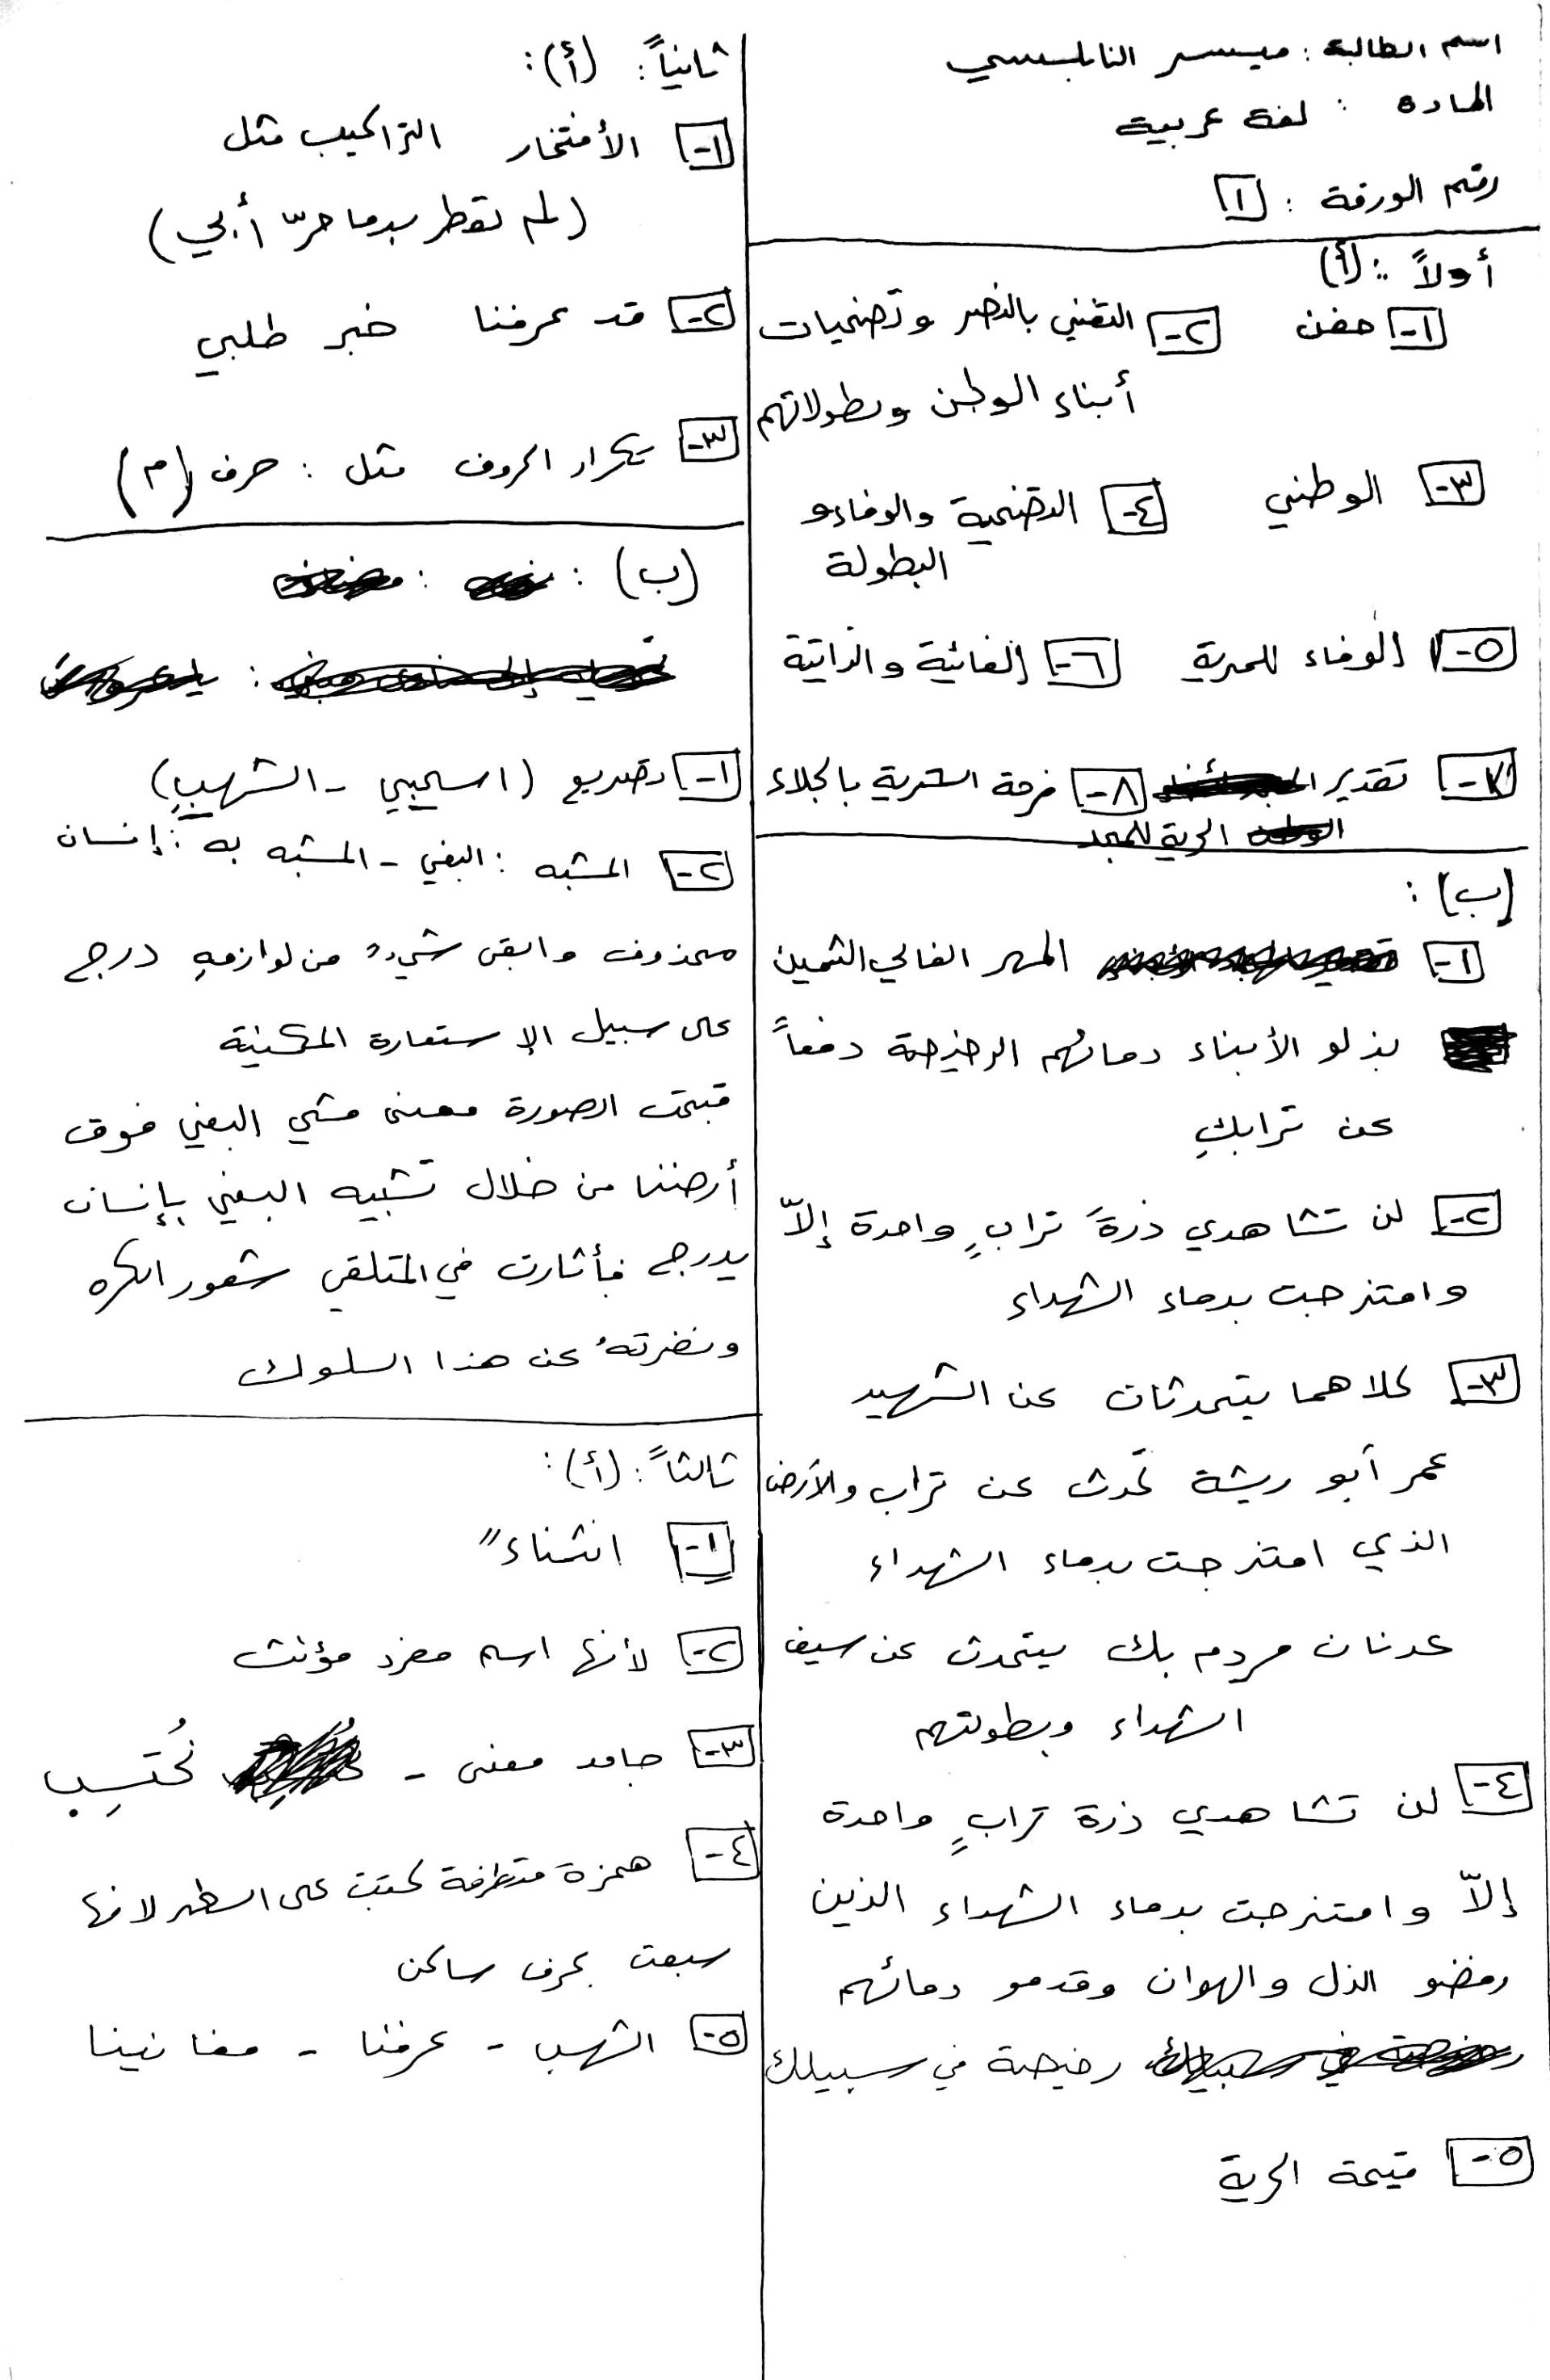 اسم الطالبة : ميسر النابلسي
المادة : لغة عربية
رقم الورقة : ١
أولاً : (أ)
١- حفن ٢- التغني بالنصر وتضحيات
أبناء الوطن وبطولاتهم
٣- الوطني ٤- التضحية والوفاء و
البطولة
٥- الوفاء للحرية ٦- الغائية والذاتية
٧- تقدير ٨- فرحة السورية بالجلاء
الحرية للمجد
(ب) :
١- المهر الغالي الثمين
بذلو الأبناء دمائهم الرخيصة دفعاً
عن ترابكِ
٢- لن تشاهدي ذرةَ ترابٍ واحدة إلاّ
وامتزجت بدماء الشهداء
٣- كلاهما يتحدثان عن الشهيد
عمر أبو ريشة تحدث عن تراب والأرض
الذي امتزجت بدماء الشهداء
عدنان مردم بك يتحدث عن سيف
الشهداء وبطولتهم
٤- لن تشاهدي ذرة ترابٍ واحدة
إلاّ وامتزجت بدماء الشهداء الذين
رفضو الذل والهوان وقدمو دمائهم
رخيصة في سبيلك
٥- قيمة الحرية
ثانياً : (أ) :
١- الأفتخار التراكيب مثل
(لم تقطر بدما حرّ أبي)
٢- قد عرفنا خبر طلبي
٣- تكرار الحروف مثل : حرف (م)
(ب) :
١- تصريع (اسحبي - الشهبِ)
٢- المشبه : البغي - المشبه به : إنسان
محذوف وابقى شيءٌ من لوازمهِ درج
على سبيل الإستعارة المكنية
قبحت الصورة معنى مشي البغي فوق
أرضنا من خلال تشبيه البغي بإنسان
يدرج فأثارت في المتلقي شعور الكره
ونفرتهُ عن هذا السلوك
ثالثاً : (أ) :
١- انثناءً
٢- لأنها اسم مفرد مؤنث
٣- جامد معنى - نُحتَسِب
٤- همزة متطرفة كتبت على السطر لانها
سبقت بحرف ساكن
٥- الشهب - عرفنا - مغانينا